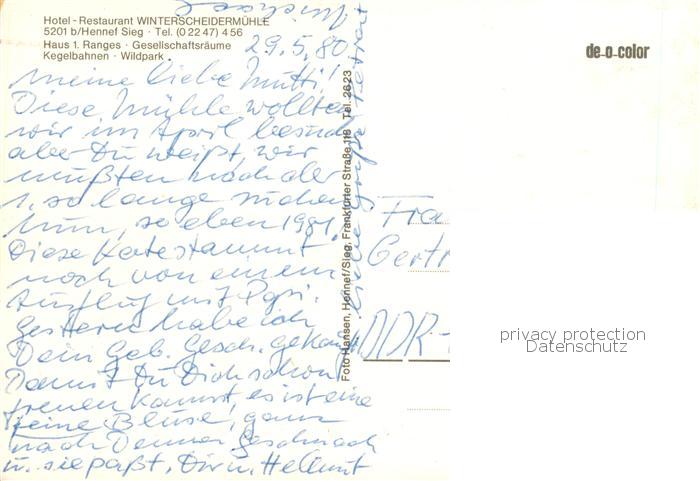 Hotel - Restaurant WINTERSCHEIDERMÜHLE
5201 b/Hennef Sieg · Tel. (0 22 47) 4 56
Haus 1. Ranges · Gesellschaftsräume
Kegelbahnen · Wildpark
de-o-color
29.5.80
Meine liebe Mutti!
Diese Mühle wollten
wir im April besuch
aber Du weißt, wir
mußten nach der
so lange suchen
Nun, so eben 1981.
Diese Karte stammt
noch von einem
Ausflug mit Papi.
Gestern habe ich
Dein Geb. Gesch. gekauft
Damit Du Dich schon
freuen kannst, es ist eine
feine Bluse, ganz
nach Deinem Geschmack
u. sie paßt. Dir u. Hellmut
liebe Grüße
Foto Hansen, Hennef/Sieg, Frankfurter Straße 116 Tel. 2623
Frau
Gertr
DDR-
privacy protection
Datenschutz